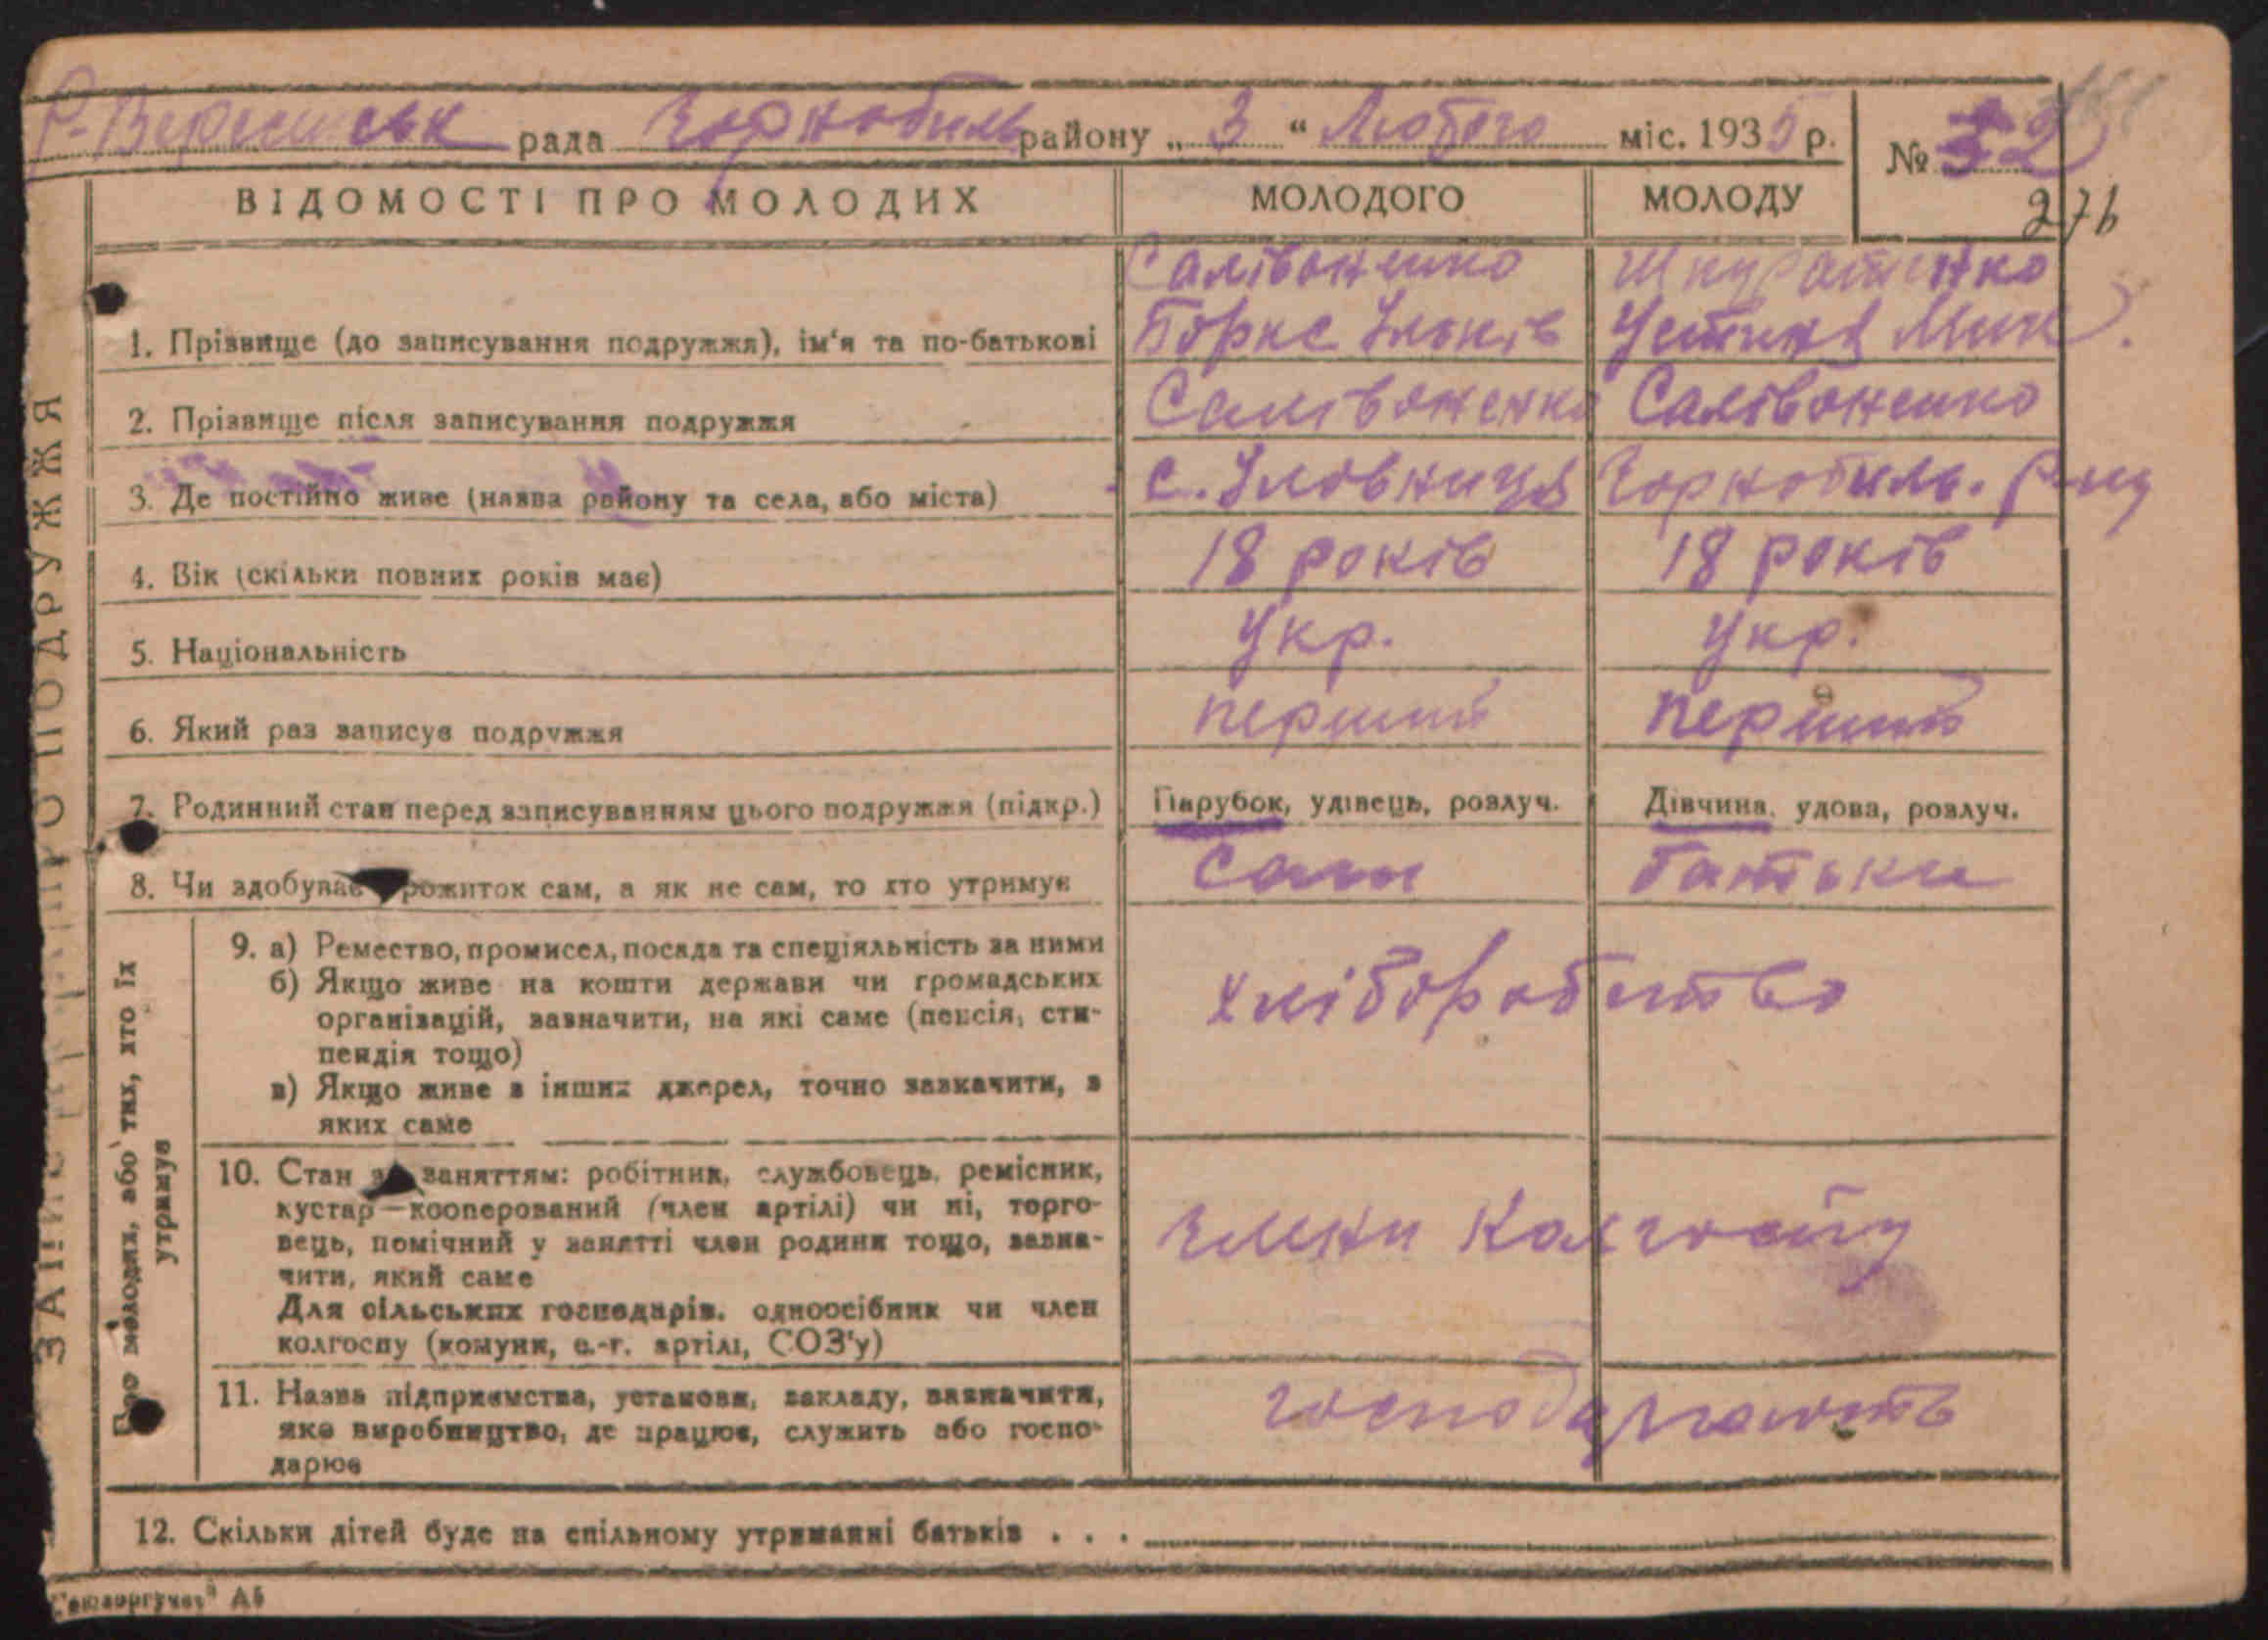 Р-Вересенськ рада Чорнобиль району „ 3 “ Лютого міс. 1935 р.
№ 32
276
ВІДОМОСТІ ПРО МОЛОДИХ МОЛОДОГО МОЛОДУ
Салівоненко Шкуратенко
1. Прізвище (до записування подружжя), ім'я та по-батькові Борис Ільків Устина Мик.
2. Прізвище після записування подружжя Салівоненко Салівоненко
3. Де постійно живе (назва району та села, або міста) с. Іловниця Чорнобиль. р-ну
4. Вік (скільки повних років має) 18 років 18 років
5. Національність Укр. Укр.
6. Який раз записує подружжя перший перший
7. Родинний стан перед записуванням цього подружжя (підкр.) Парубок, удівець, розлуч. Дівчина, удова, розлуч.
8. Чи здобуває рожиток сам, а як не сам, то хто утримує Сам батьки
9. а) Ремество, промисел, посада та спеціяльність за ними
б) Якщо живе на кошти держави чи громадських
організацій, зазначити, на які саме (пенсія, сти-
пендія тощо)
в) Якщо живе з інших джерел, точно зазначити, з
яких саме
хліборобство
10. Стан за заняттям: робітник, службовець, ремісник,
кустар—кооперований (член артілі) чи ні, торго-
вець, помічний у занятті член родини тощо, зазна-
чити, який саме
Для сільських господарів, одноосібник чи член
колгоспу (комуни, с.-г. артілі, СОЗ'у)
члени колгоспу
11. Назва підприємства, установи, закладу, зазначити,
яке виробництво, де працює, служить або госпо-
дарює
господарюють
12. Скільки дітей буде на спільному утриманні батьків . . .
Про молодих, або тих, хто їх
утримує
ЗАПИС ПРО ПОДРУЖЖЯ